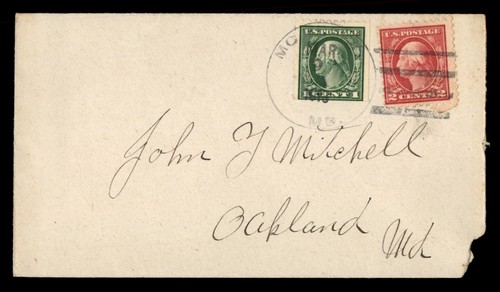 U.S. POSTAGE
1 CENT 1
U.S. POSTAGE
2 CENTS 2
John J Mitchell
Oakland
Md